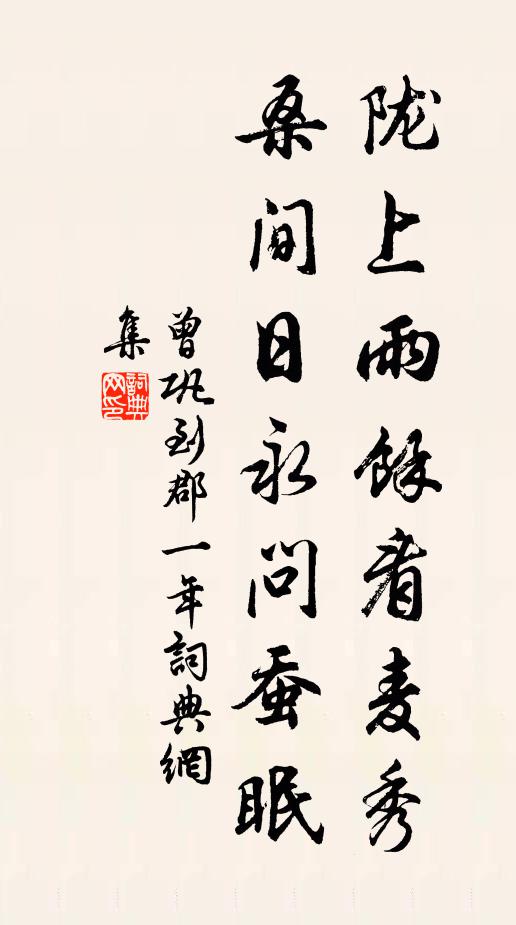 陇上雨馀看麦秀
桑间日永问蚕眠
曾巩到郡一年詞典網
集
詞典
网印